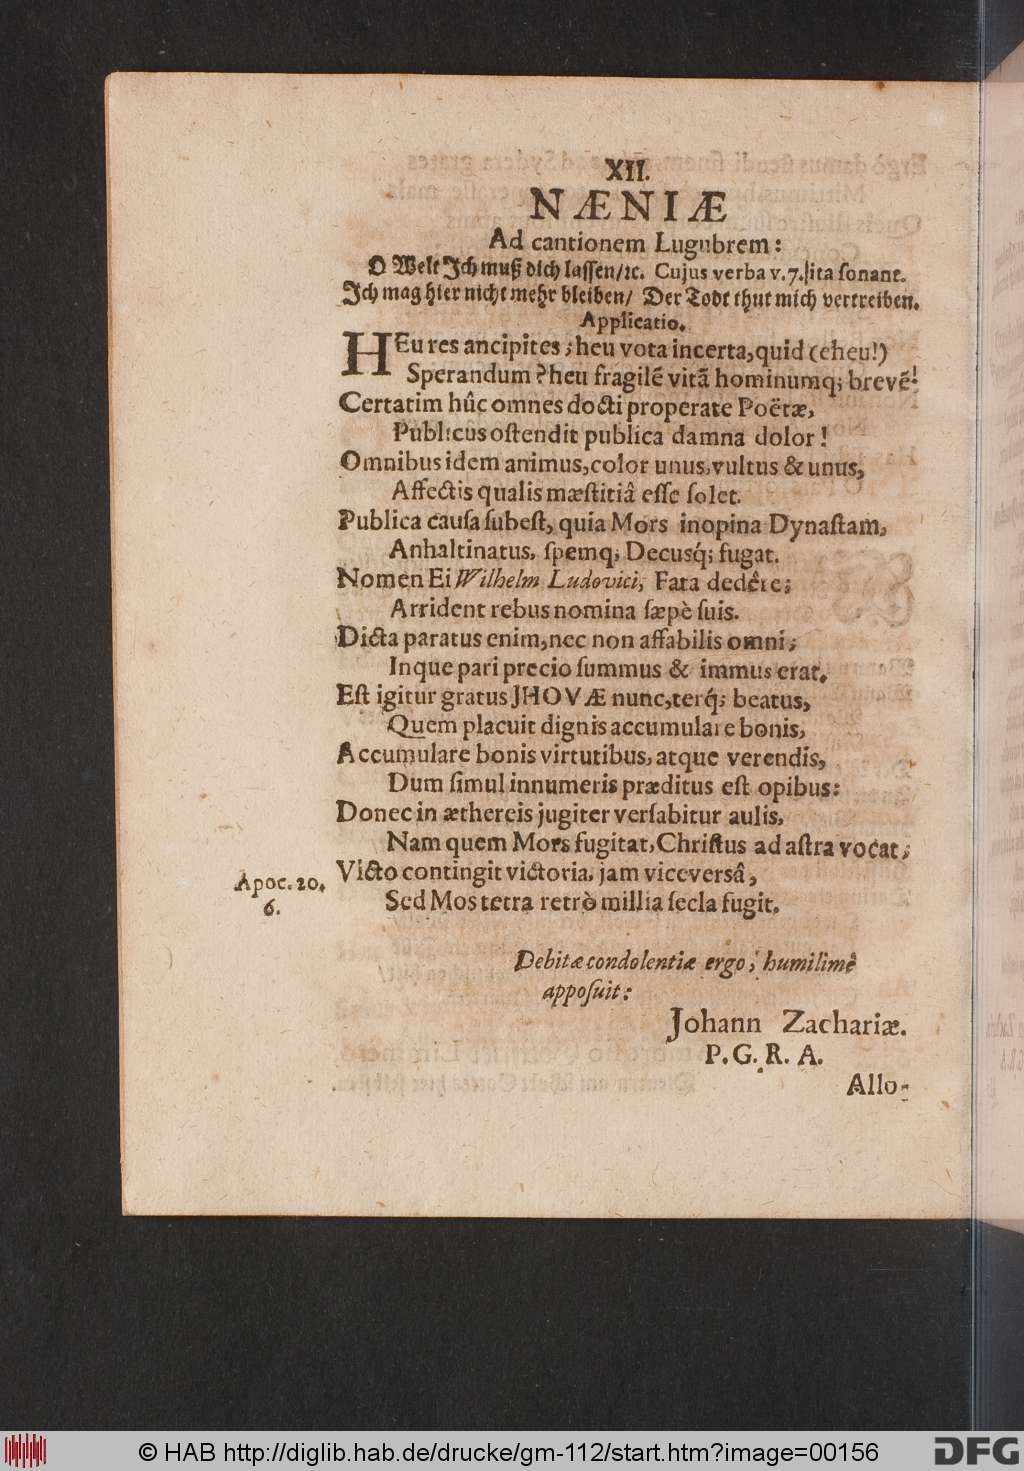 XII.
NÆNIÆ
Ad cantionem Lugubrem:
O Welt Ich muß dich lassen/ꝛc. Cujus verba v. 7. ita sonant.
Ich mag hier nicht mehr bleiben/ Der Todt thut mich vertreiben.
Applicatio.
HEu res ancipites; heu vota incerta, quid (eheu!)
Sperandum? heu fragilẽ vitã hominumq; brevẽ!
Certatim hûc omnes docti properate Poëtæ,
Publicus ostendit publica damna dolor!
Omnibus idem animus, color unus, vultus & unus,
Affectis qualis mæstitiâ esse solet.
Publica causa subest, quia Mors inopina Dynastam,
Anhaltinatus, spemq; Decusq́; fugat.
Nomen Ei Wilhelm Ludovici, Fata dedêre;
Arrident rebus nomina sæpè suis.
Dicta paratus enim, nec non affabilis omni;
Inque pari precio summus & immus erat.
Est igitur gratus JHOVÆ nunc, terq́; beatus,
Quem placuit dignis accumulare bonis,
Accumulare bonis virtutibus, atque verendis,
Dum simul innumeris præditus est opibus:
Donec in æthereis jugiter versabitur aulis,
Nam quem Mors fugitat, Christus ad astra vocat;
Victo contingit victoria, jam viceversâ,
Sed Mos tetra retrò millia secla fugit.
Apoc. 20.
6.
Debitæ condolentiæ ergo, humilimè
apposuit:
Johann Zachariæ.
P. G. R. A.
Allo-
© HAB http://diglib.hab.de/drucke/gm-112/start.htm?image=00156
DFG